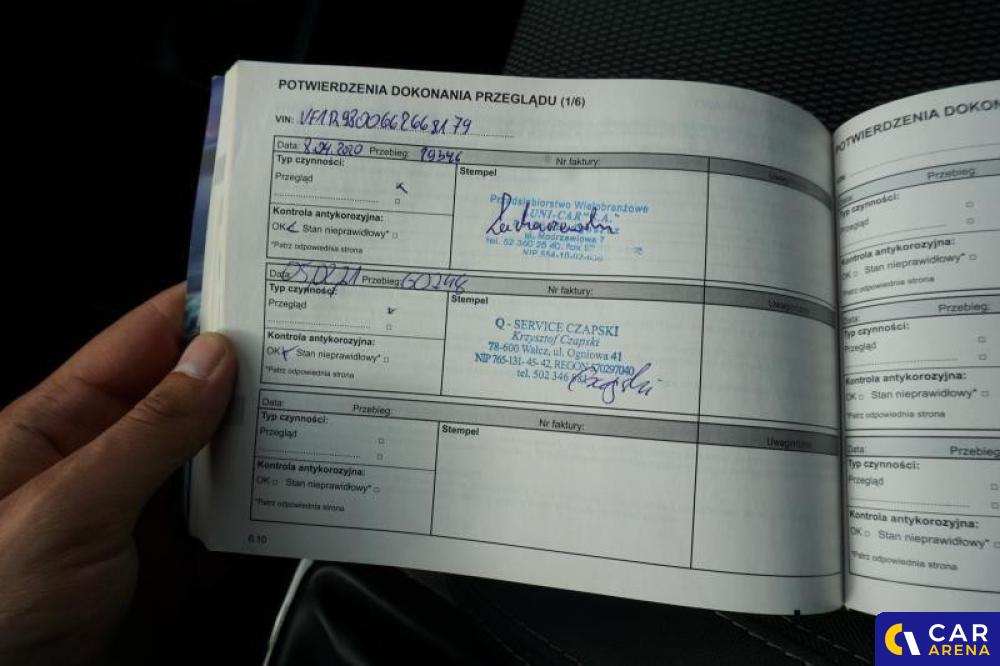 POTWIERDZENIA DOKONANIA PRZEGLĄDU (1/6)
VIN:
Data: 8.04.2020 Przebieg: Nr faktury:
Typ czynności:
Przegląd
Stempel
Przedsiębiorstwo Wielobranżowe
"UNI-CAR"
ul. Modrzewiowa 7
Kontrola antykorozyjna:
OK Stan nieprawidłowy*
*Patrz odpowiednia strona
Data: Przebieg: 60246 Nr faktury:
Typ czynności:
Przegląd
Stempel
Q - SERVICE CZAPSKI
Krzysztof Czapski
78-600 Wałcz, ul. Ogniowa 41
NIP 765-131-45-42, REGON 570297040
tel. 502 346
Kontrola antykorozyjna:
OK Stan nieprawidłowy*
*Patrz odpowiednia strona
Data: Przebieg: Nr faktury:
Typ czynności:
Przegląd
Stempel
Kontrola antykorozyjna:
OK Stan nieprawidłowy*
*Patrz odpowiednia strona
6.10
POTWIERDZENIA
Przebieg:
Typ czynności:
Przegląd
Kontrola antykorozyjna:
OK Stan nieprawidłowy*
*Patrz odpowiednia strona
Data: Przebieg:
Typ czynności:
Przegląd
Kontrola antykorozyjna:
OK Stan nieprawidłowy*
*Patrz odpowiednia strona
Data: Przebieg
Typ czynności:
Przegląd
Kontrola antykorozyjna:
OK Stan nieprawidłowy*
*Patrz odpowiednia strona
CAR
ARENA